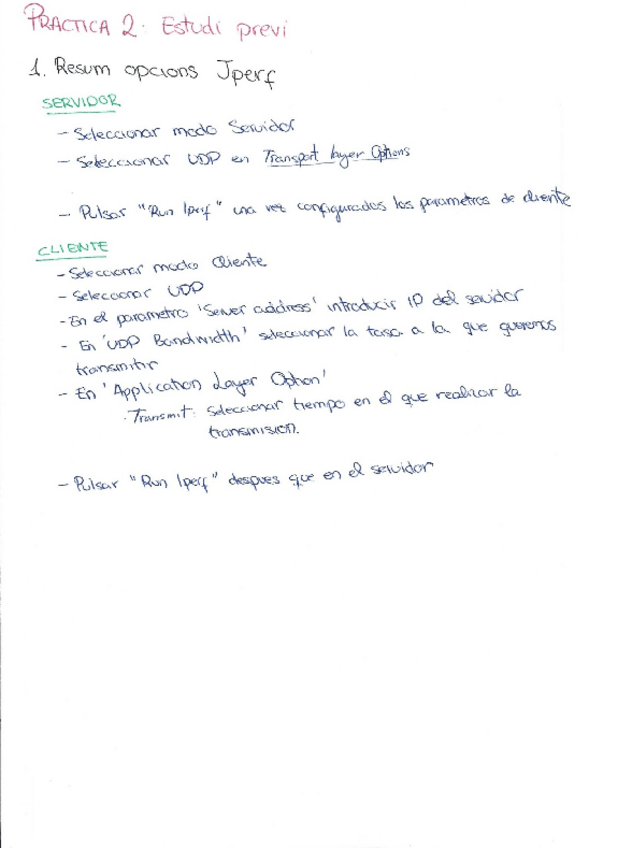 PRACTICA 2: Estudi previ
1. Resum opcions Jperf
SERVIDOR
- Seleccionar modo Servidor
- Seleccionar UDP en Transport layer Options
- Pulsar "Run Iperf" una vez configurados los parametros de cliente
CLIENTE
- Seleccionar modo Cliente
- Seleccionar UDP
- En el parametro 'Server address' introducir IP del servidor
- En 'UDP Bandwidth' seleccionar la tasa a la que queremos
transmitir
- En 'Application Layer Option'
· Transmit: Seleccionar tiempo en el que realizar la
transmision.
- Pulsar "Run Iperf" despues que en el servidor